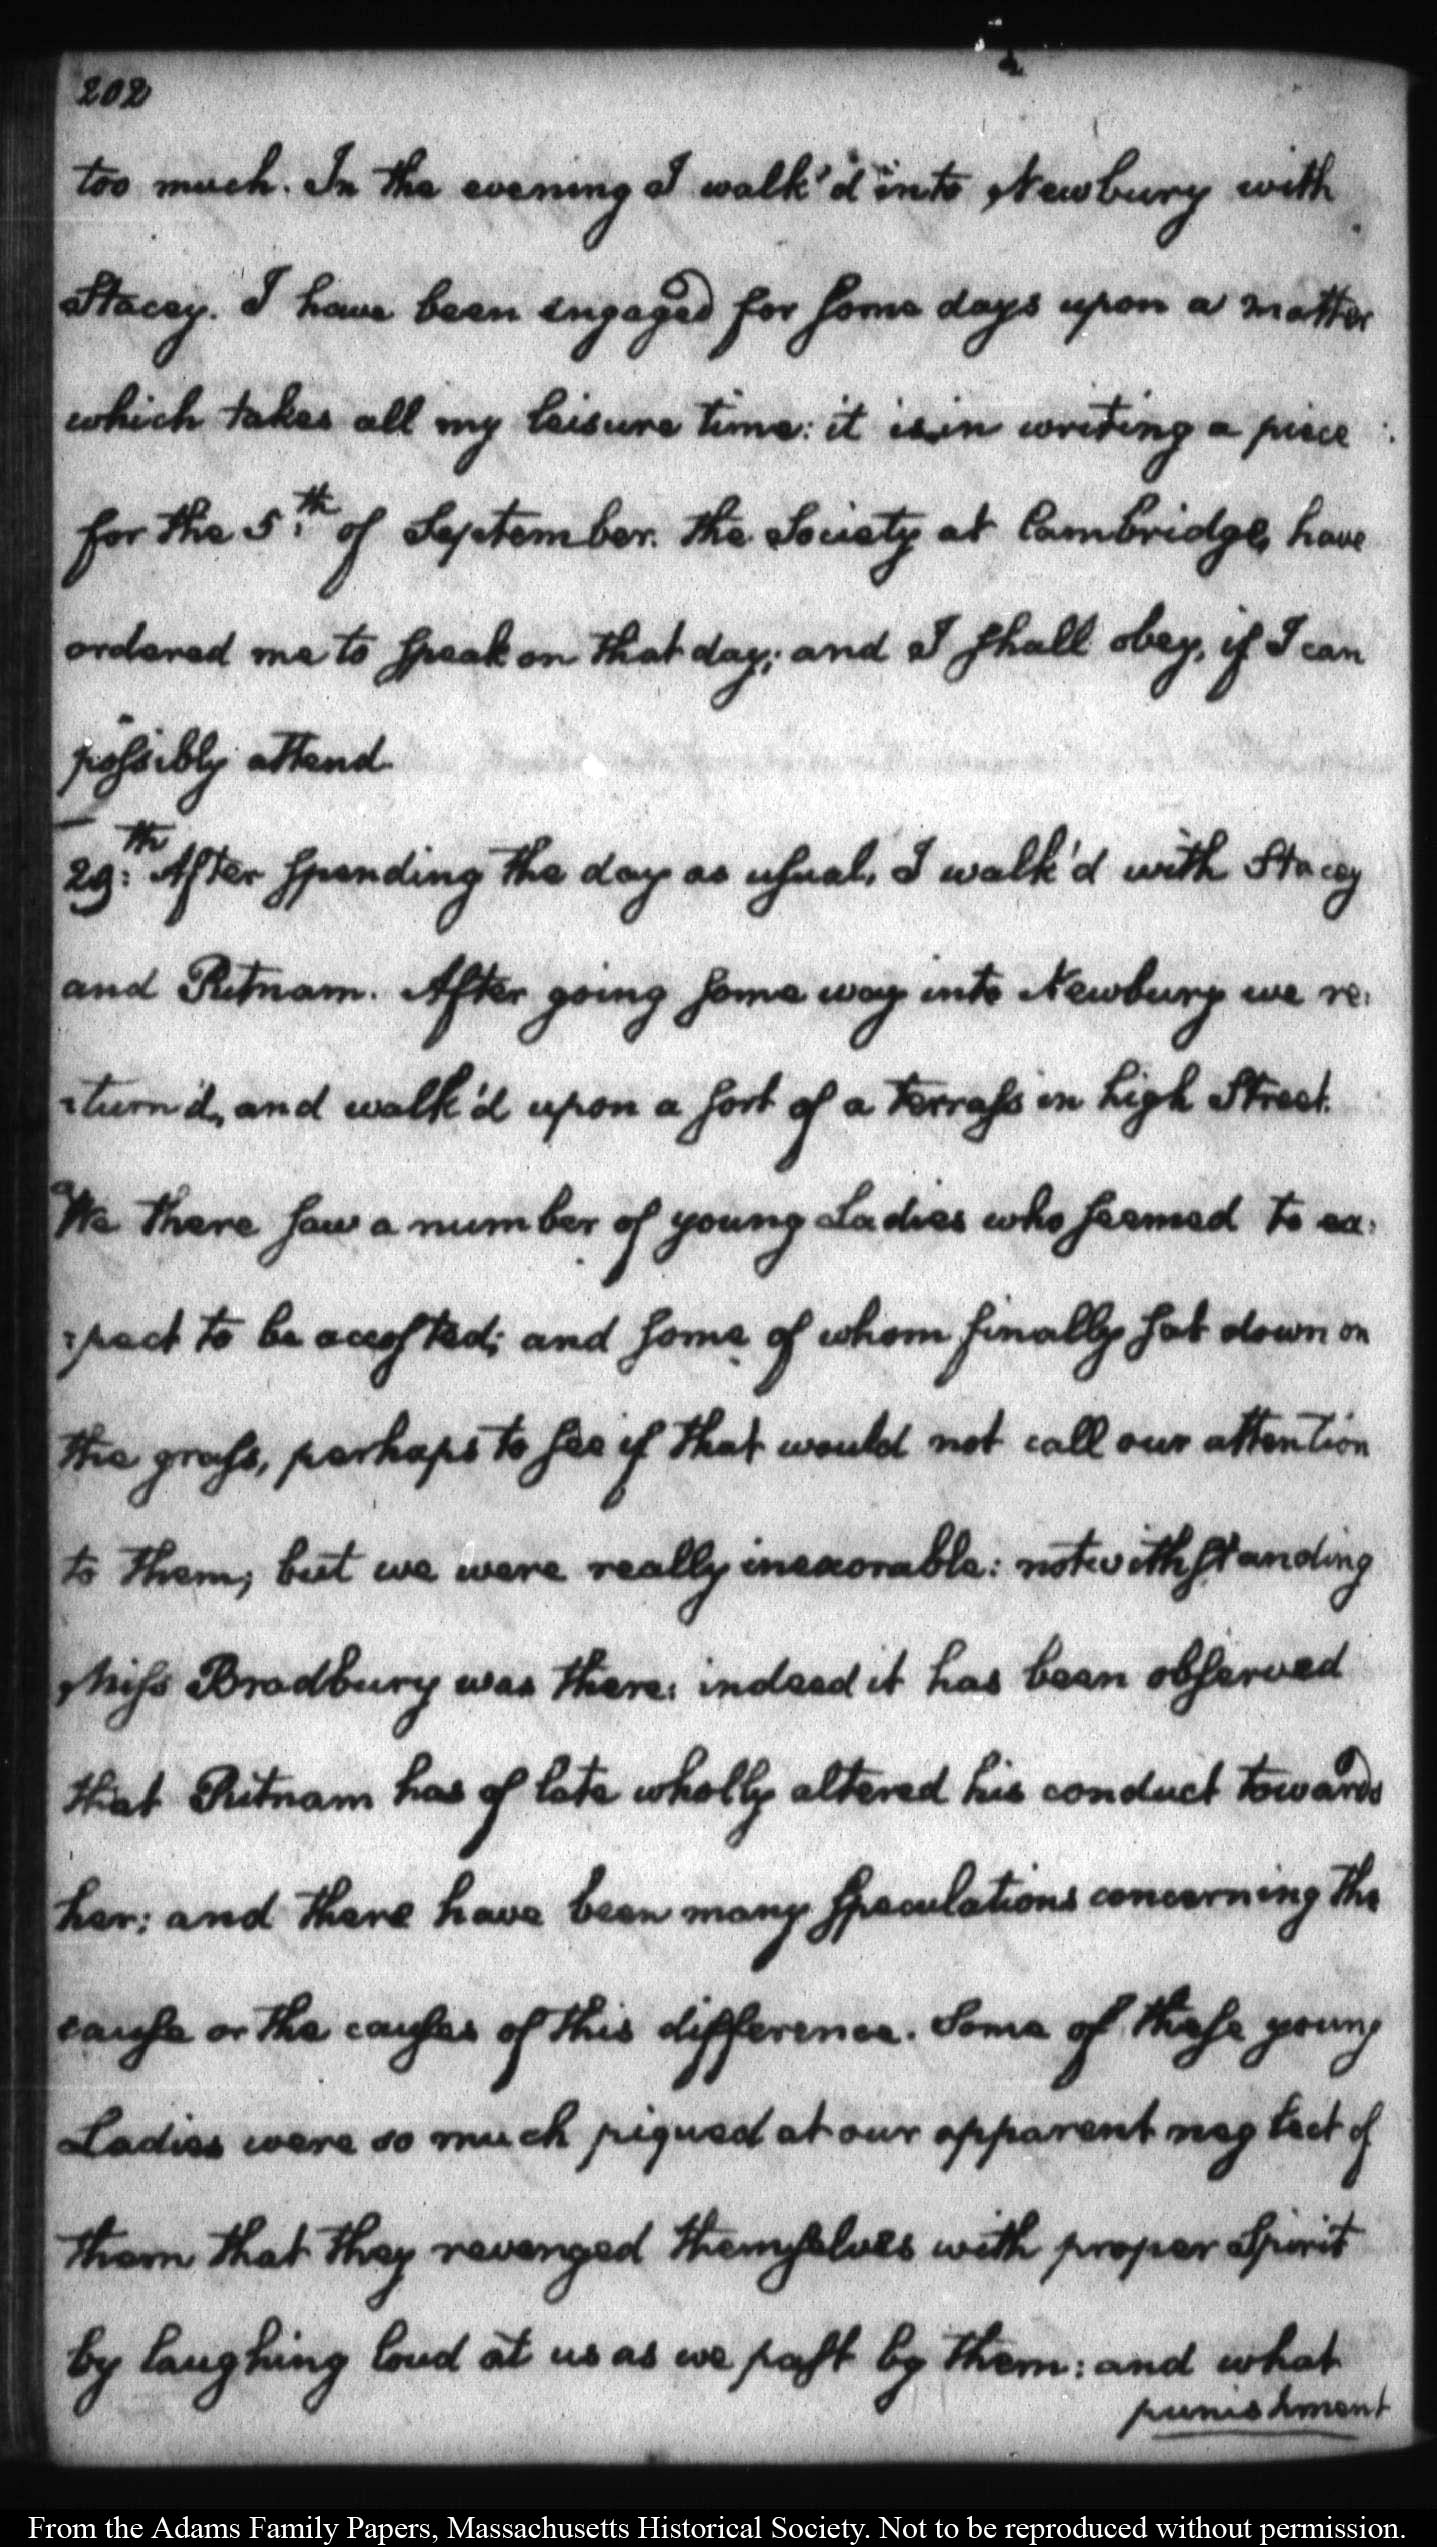 202
too much. In the evening I walk'd into Newbury with
Stacey. I have been engaged for some days upon a matter
which takes all my leisure time: it is in writing a piece
for the 5th of September. the Society at Cambridge, have
ordered me to speak on that day; and I shall obey, if I can
possibly attend.
29th: After spending the day as usual, I walk'd with Stacey
and Putnam. After going some way into Newbury we re:
:turn'd, and walk'd upon a sort of a terrass in high Street.
We there saw a number of young Ladies who seemed to ex:
:pect to be accosted; and some of whom finally sat down on
the grass, perhaps to see if that would not call our attention
to them; but we were really inexorable: notwithstanding
Miss Bradbury was there: indeed it has been observed
that Putnam has of late wholly altered his conduct towards
her; and there have been many speculations concerning the
cause or the causes of this difference. Some of these young
Ladies were so much piqued at our apparent neglect of
them that they revenged themselves with proper Spirit
by laughing loud at us as we past by them: and what
punishment
From the Adams Family Papers, Massachusetts Historical Society. Not to be reproduced without permission.